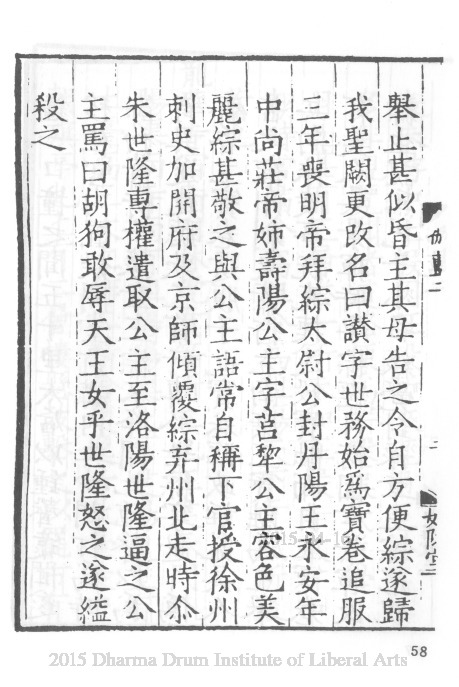 舉止甚似昏主其母告之令自方便綜遂歸
我聖闕更改名曰讃字世務始爲寶卷追服
三年喪明帝拜綜太尉公封丹陽王永安年
中尚莊帝姉壽陽公主字莒犂公主容色美
麗綜甚敬之與公主語常自稱下官授徐州
刺史加開府及京師傾覆綜弃州北走時尒
朱世隆專權遣取公主至洛陽世隆逼之公
主罵曰胡狗敢辱天王女乎世隆怒之遂縊
殺之
58
2015 Dharma Drum Institute of Liberal Arts